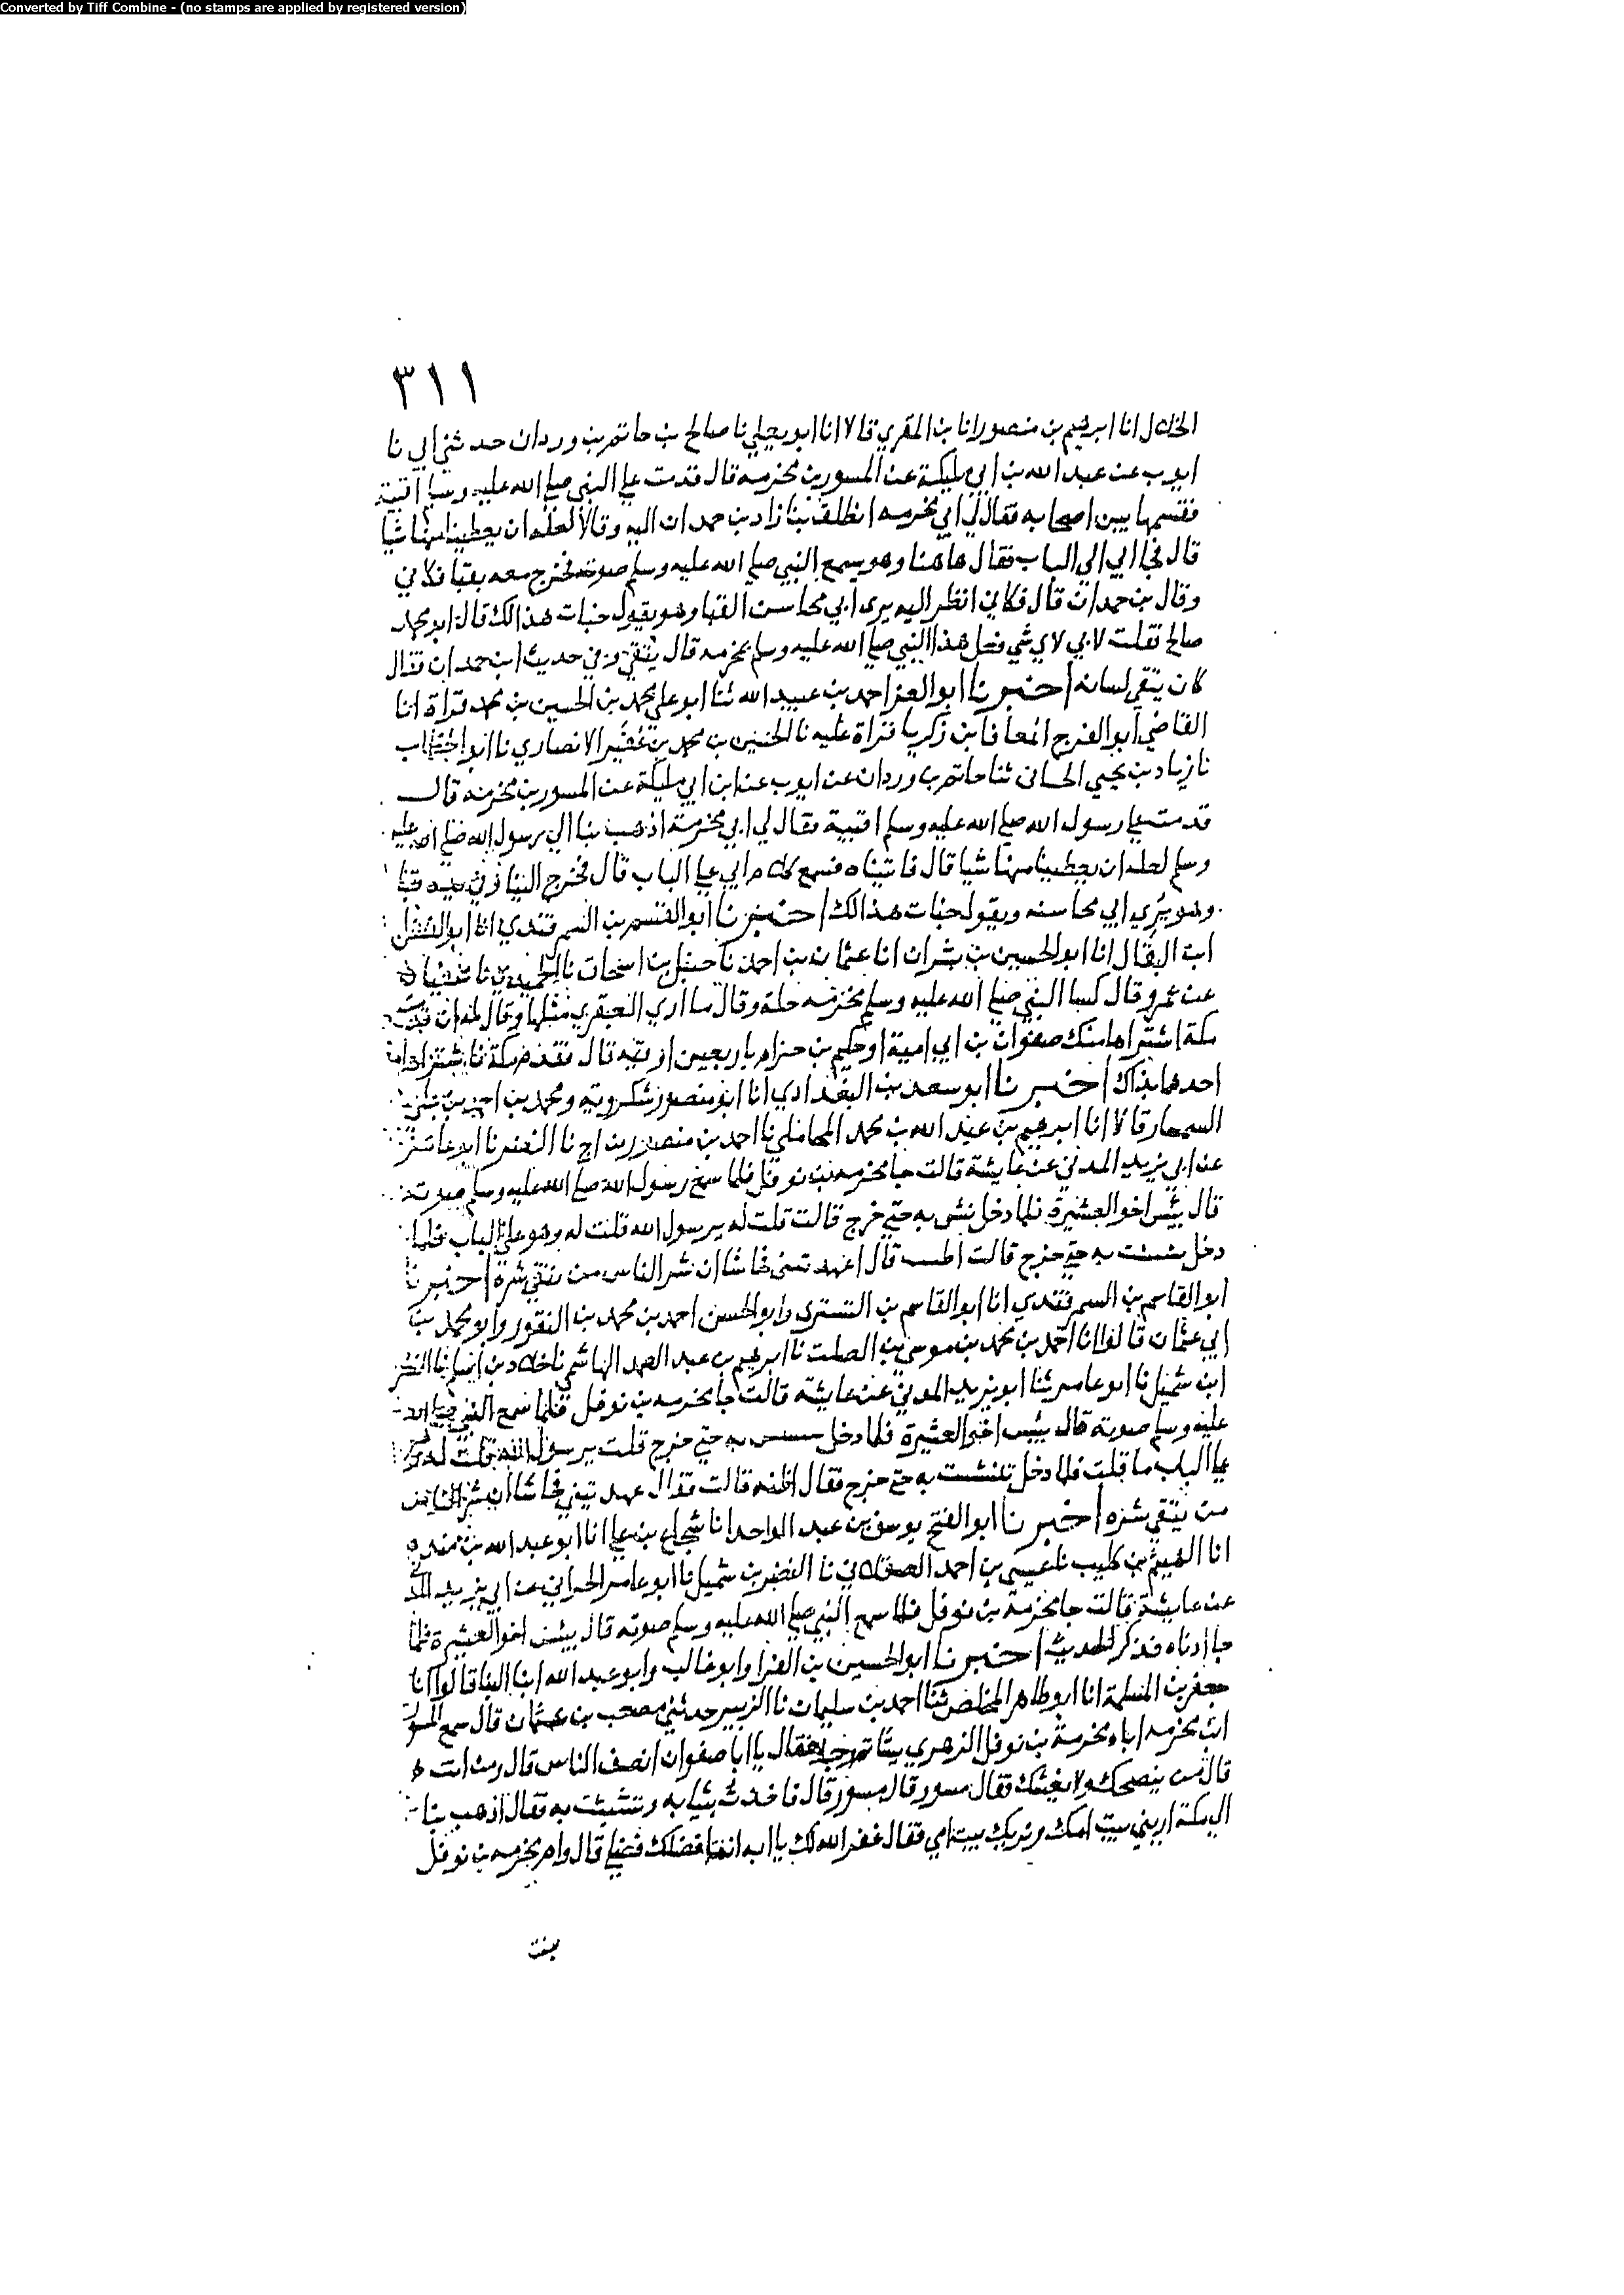 Converted by Tiff Combine - (no stamps are applied by registered version)
٣١١
الخلال انا ابرهيم بن منصور انا بن المقري قالا انا ابو يعلي نا صالح بن حاتم بن وردان حدثني ابي نا
ايوب عن عبد الله بن ابي مليكة عن المسور بن مخرمه قال قدمت علي النبي صلي الله عليه وسلم اقبية
فقسمها بين اصحابه فقال لي ابي مخرمه انطلق بنا زاد بن حمدان اليه وقالا لعله ان يعطينا منها شيا
قال فجا ابي الي الباب فقال هاهنا وهو يسمع النبي صلي الله عليه وسلم صوته فخرج معه بقبا فكاني
وقال بن حمدان قال فكاني انظر اليه يري ابي محاسن القبا وهو يقول خبات هذا لك قال ابو محمد
صالح فقلت لابي لاي شي فعل هذا النبي صلي الله عليه وسلم بمخرمه قال يتقي وفي حديث ابن حمدان قال
كان يتقي لسانه اخبرنا ابو العز احمد بن عبيد الله ثنا ابو علي محمد بن الحسين بن محمد قراة انا
القاضي ابو الفرج المعافا بن زكريا قراة عليه نا الحسين بن محمد بن عفير الانصاري نا ابو الخطاب
نا زياد بن يحيي الحساني ثنا حاتم بن وردان عن ايوب عن ابن ابي مليكة عن المسور بن مخرمه قال
قدمت علي رسول الله صلي الله عليه وسلم اقبية فقال لي ابي مخرمة اذهب بنا الي رسول الله صلي الله عليه
وسلم لعله ان يعطينا منها شيا قال فاتيناه فسمع كلام ابي علي الباب قال فخرج الينا وفي يده قبا
وهو يري ابي محاسنه ويقول خبات هذا لك اخبرنا ابو القسم بن السمرقندي انا ابو الفضل
ابن البقال انا ابو الحسين بن بشران انا عثمان بن احمد نا حنبل بن اسحاق نا الحميدي نا سفيان
عن عمرو قال كسا النبي صلي الله عليه وسلم مخرمه حلة وقال ما اري العبقري مثلها وقال له ان قدمت
مكة اشتراها منك صفوان بن ابي امية او حكيم بن حزام باربعين اوقية قال فقدم مكة فاشتراها
احدهما بذاك اخبرنا ابو سعد بن البغدادي انا ابو منصور شكرويه ومحمد بن احمد بن علي
السمسار قالا انا ابرهيم بن عبد الله بن محمد المحاملي نا احمد بن منصور نا النضر نا ابو عامر
عن ابي يزيد المدني عن عايشة قالت جا مخرمه بن نوفل فلما سمع رسول الله صلي الله عليه وسلم صوته
قال بئس اخو العشيرة فلما دخل بش به حتي خرج قالت قلت له يرسول الله قلت له وهو علي الباب فلما
دخل بششت به حتي خرج قالت قال اعهد تني فحاشا ان شر الناس من يتقي شره اخبرنا
ابو القاسم بن السمرقندي انا ابو القاسم بن التستري وابو الحسن احمد بن محمد بن النقور وابو محمد بن
ابي عثمان قالوا انا احمد بن محمد بن موسي بن الصلت نا ابرهيم بن عبد الصمد الهاشمي نا خلاد بن اسلم نا النضر
ابن شميل نا ابو عامر ثنا ابو يزيد المدني عن عايشه قالت جا مخرمه بن نوفل فلما سمع النبي صلي الله
عليه وسلم صوته قال بئيس اخو العشيرة فلما دخل به حتي خرج قلت يرسول الله قلت له
علي الباب ما قلت فلما دخل به حتي خرج فقال قالت فقال عهدتيني فحاشا ان شر الناس
من يتقي شره اخبرنا ابو الفتح يوسف بن عبد الواحد انا شجاع بن علي انا ابو عبد الله بن منده
انا الهيثم بن كليب نا عيسي بن احمد العسقلاني نا النضر بن شميل نا ابو عامر الحراني عن ابي يزيد المدني
عن عايشة قالت جا مخرمة بن نوفل فلما سمع النبي صلي الله عليه وسلم صوته قال بيئس اخو العشيرة فلما
جا ادناه فذكر الحديث اخبرنا ابو الحسين بن الفرا وابو غالب وابو عبد الله ابنا البنا قالوا انا
جعفر بن المسلمة انا ابو طاهر المخلص ثنا احمد بن سليمان نا الزبير حدثني مصعب بن عثمان قال سمع المسور
ابن مخرمه اباه مخرمة بن نوفل الزهري يشاتم رجلا فقال يا ابا صفوان انصف الناس قال ومن انت
قال من ينصحك ولا يغشك فقال مسور قال مسور قال فاخذت بثيابه وتشبثت به فقال اذهب بنا
الي مكة اريني بيت امك ونريك بيت امي فقال غفر الله لك يا ابه انما فضلك فضلي قال وام مخرمه بن نوفل
بنت